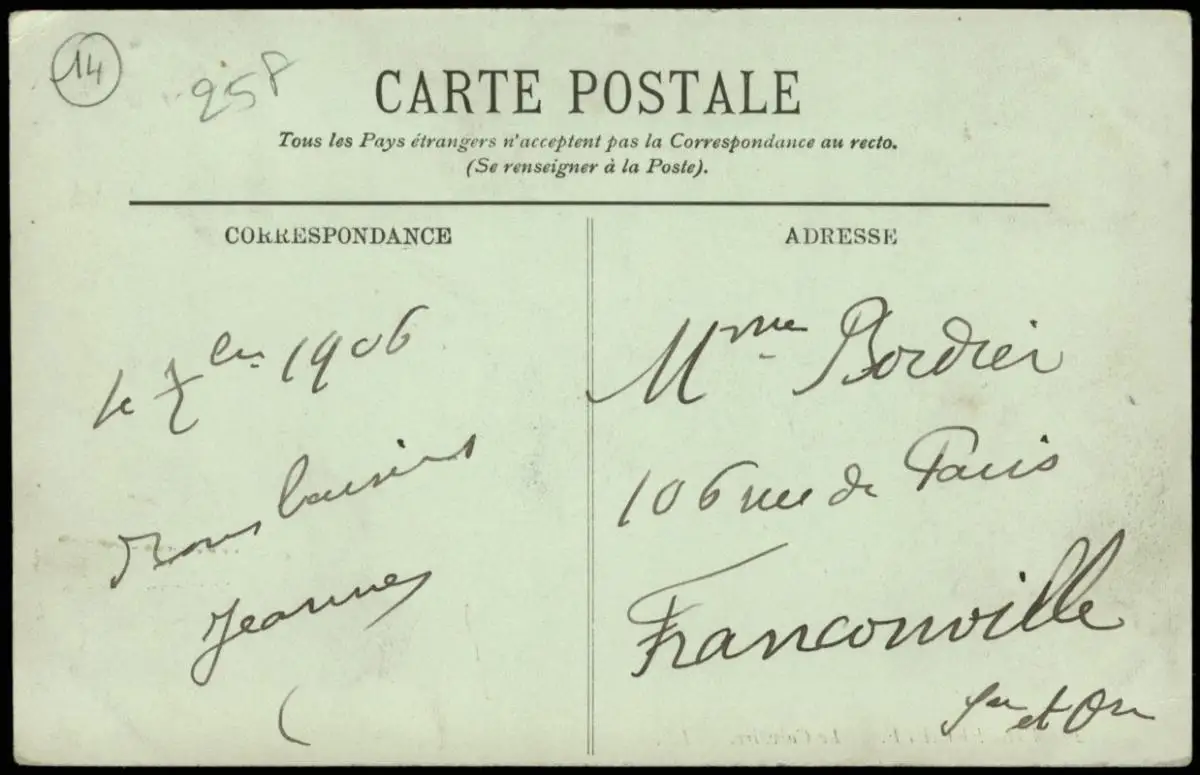 14
25 F
CARTE POSTALE
Tous les Pays étrangers n'acceptent pas la Correspondance au recto.
(Se renseigner à la Poste).
CORRESPONDANCE
ADRESSE
le 7bre 1906
Bons baisers
Jeanne
Mme Bordier
106 rue de Paris
Franconville
Sne et Oise